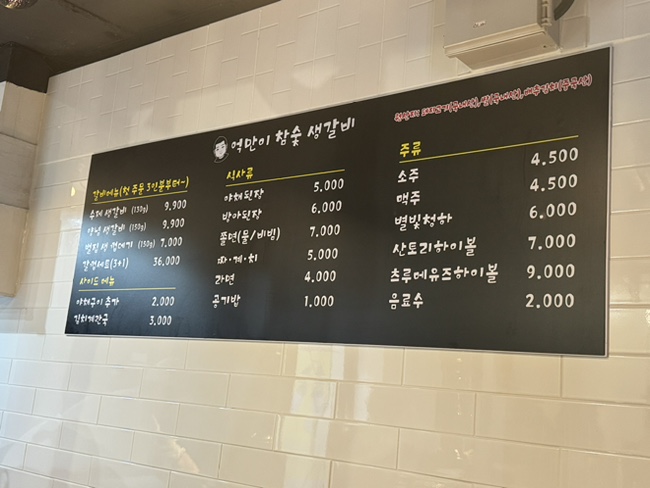 억만이 참숯 생갈비
원산지: 돼지고기(국내산), 쌀(국내산), 배추김치(중국산)
갈비메뉴(첫 주문 3인분부터~)
수제 생갈비 (150g) 9,900
양념 생갈비 (150g) 9,900
벌집 생 껍데기 (150g) 7,000
갈껍세트(3+1) 36.000
사이드 메뉴
야채구이 추가 2.000
김치계란국 3.000
식사류
야채된장 5.000
방아된장 6.000
쫄면(물/비빔) 7.000
짜·계·치 5.000
라면 4.000
공기밥 1.000
주류
소주 4.500
맥주 4.500
별빛청하 6.000
산토리하이볼 7.000
츠루메유즈하이볼 9.000
음료수 2.000